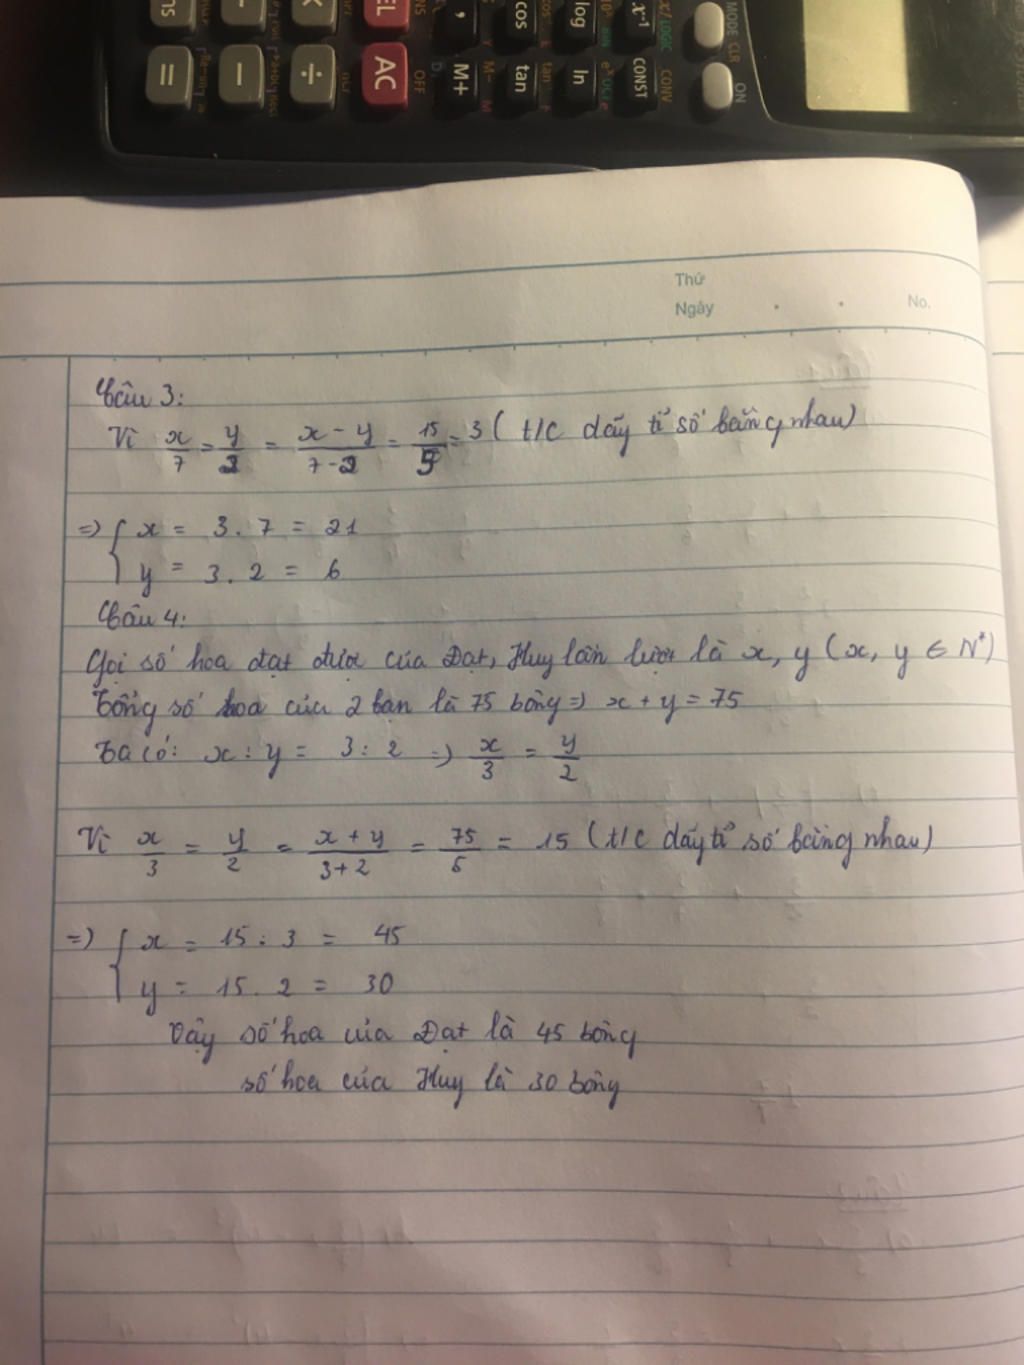 =
−
÷
AC
M+
tan
ln
CONST
cos
log
x⁻¹
OFF
CONV
MODE
CLR
ON
Thứ
Ngày
No.
Câu 3:
Vì x/7 = y/2 = x - y/7 - 2 = 15/5 = 3 ( t/c dãy tỉ số bằng nhau)
=> { x = 3 . 7 = 21
y = 3 . 2 = 6
Câu 4:
Gọi số hoa đạt được của Đạt, Huy lần lượt là x, y (x, y ∈ N*)
Tổng số hoa của 2 bạn là 75 bông => x + y = 75
Ta có: x : y = 3 : 2 => x/3 = y/2
Vì x/3 = y/2 = x + y/3 + 2 = 75/5 = 15 (t/c dãy tỉ số bằng nhau)
=> { x = 15 . 3 = 45
y = 15 . 2 = 30
Vậy số hoa của Đạt là 45 bông
số hoa của Huy là 30 bông